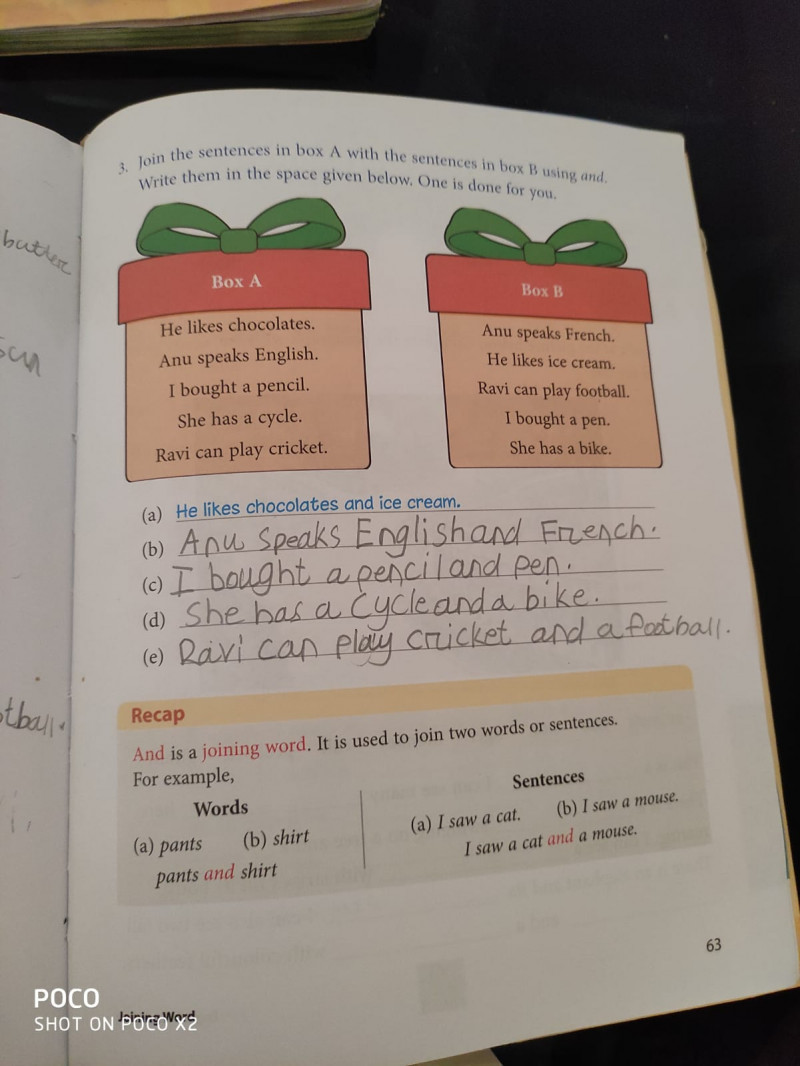 3. Join the sentences in box A with the sentences in box B using and.
Write them in the space given below. One is done for you.
Box A
He likes chocolates.
Anu speaks English.
I bought a pencil.
She has a cycle.
Ravi can play cricket.
Box B
Anu speaks French.
He likes ice cream.
Ravi can play football.
I bought a pen.
She has a bike.
(a) He likes chocolates and ice cream.
(b) Anu speaks English and French.
(c) I bought a pencil and pen.
(d) She has a cycle and a bike.
(e) Ravi can play cricket and a football.
Recap
And is a joining word. It is used to join two words or sentences.
For example,
Words
(a) pants (b) shirt
pants and shirt
Sentences
(a) I saw a cat. (b) I saw a mouse.
I saw a cat and a mouse.
63
Joining Word
butter
tball.
POCO
SHOT ON POCO X2